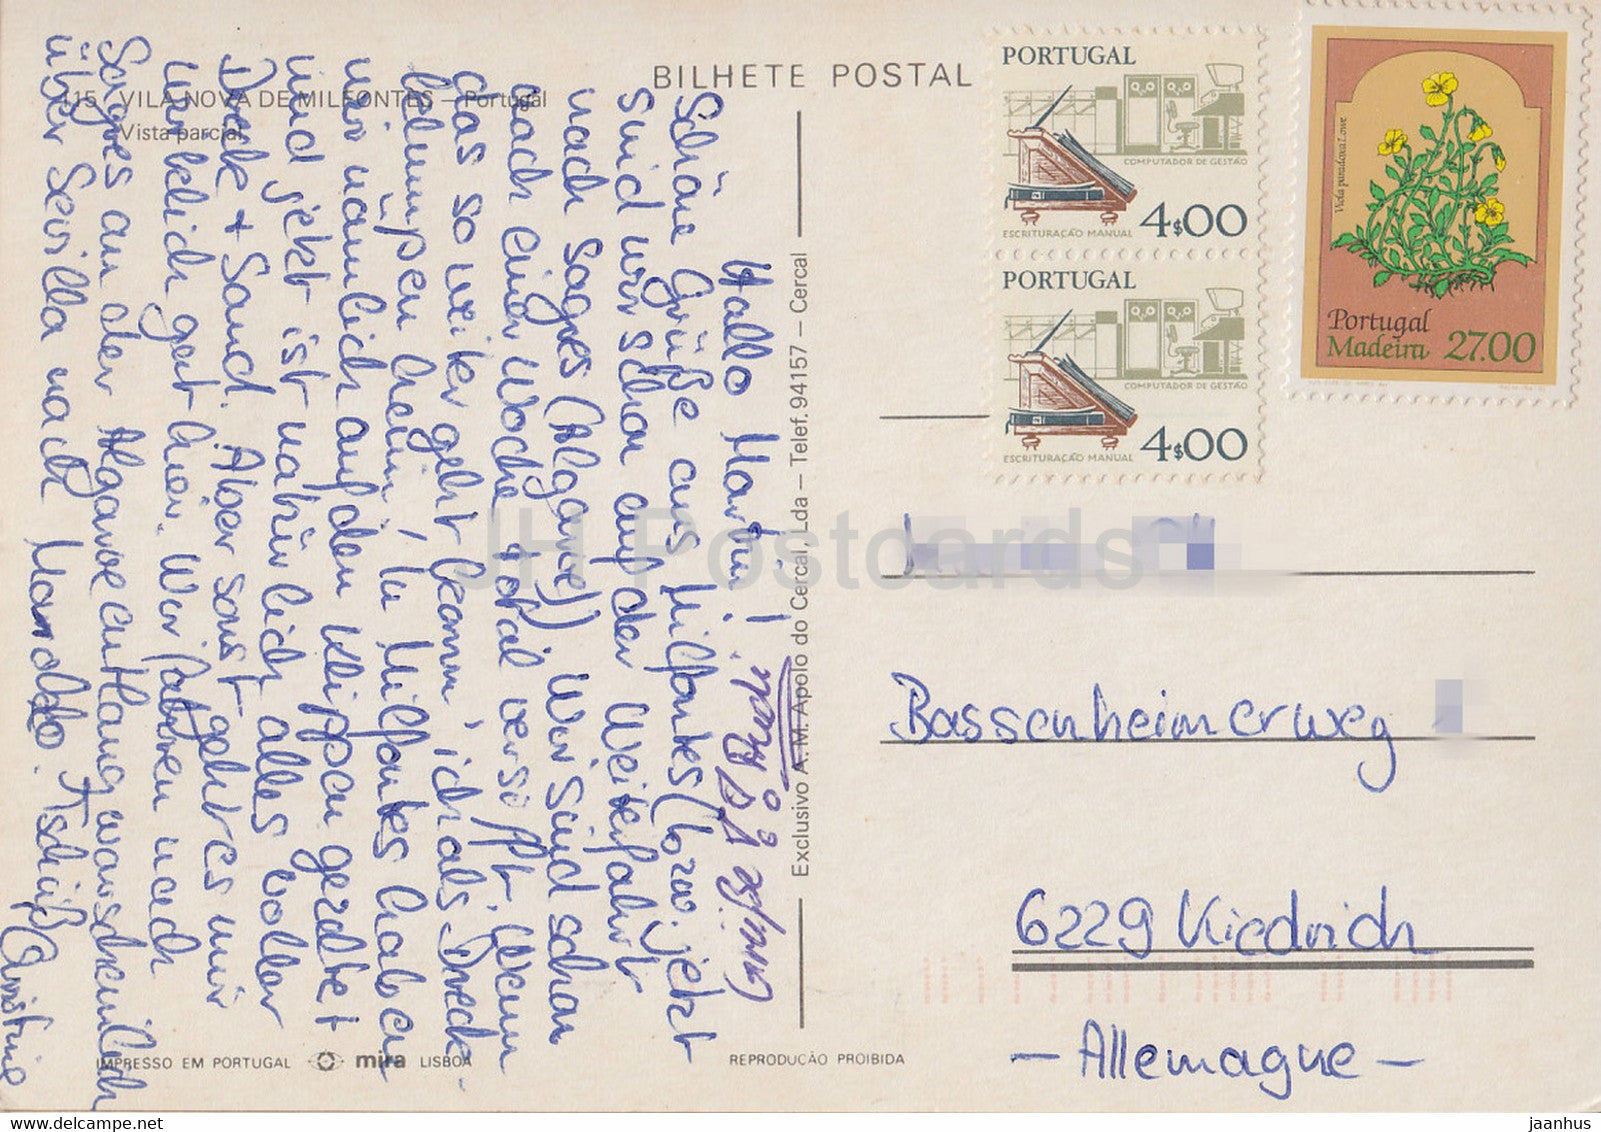 BILHETE POSTAL
115 VILA NOVA DE MILFONTES – Portugal
Vista parcial
Hallo Martin!
Schöne Grüße aus Milfontes (bzw. jetzt
sind wir schon auf der Weiterfahrt
nach Sagres (Algarve)). Wir sind schon
nach einer Woche total versifft. Wenn
das so weiter geht komm' ich als Dreck-
klumpen heim, In Milfontes haben
wir nämlich auf den Klippen gezeltet
und jetzt ist natürlich alles voller
Dreck + Sand. Aber sonst geht es mir
wirklich gut hier. Wir fahren nach
Sagres an der Algarve entlang warscheinlich
über Sevilla nach Marokko. Tschüß Christine
Exclusivo A. M. Apolo do Cercal, Lda – Telef. 94157 – Cercal
IMPRESSO EM PORTUGAL mira LISBOA
REPRODUÇÃO PROIBIDA
PORTUGAL
COMPUTADOR DE GESTÃO
ESCRITURAÇÃO MANUAL 4$00
PORTUGAL
COMPUTADOR DE GESTÃO
ESCRITURAÇÃO MANUAL 4$00
Viola paradoxa Lowe
Portugal
Madeira 27.00
Bassenheimerweg
6229 Kiedrich
– Allemagne –
JH Postcards
www.delcampe.net
jaanhus